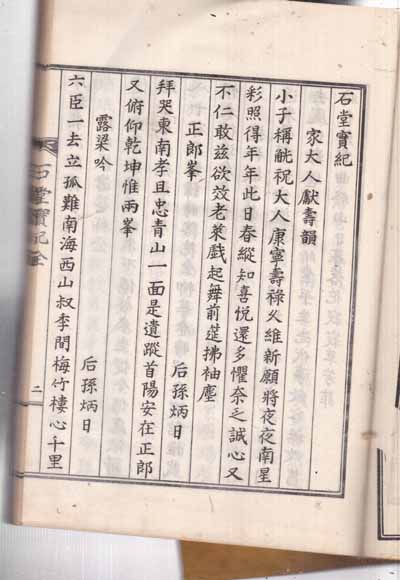 石堂寶紀
家大人獻壽韻
小子稱觥祝大人康寧壽祿又維新願將夜夜南星
彩照得年年此日春縱知喜悅還多懼奈乏誠心又
不仁敢兹欲效老萊戲起舞前筵拂袖塵
正郎峯
后孫炳日
拜哭東南孝且忠青山一面是遺蹤首陽安在正郎
又俯仰乾坤惟兩峯
露梁吟
后孫炳日
六臣一去立孤難南海西山叔季間梅竹棲心千里
石堂寶紀全
二